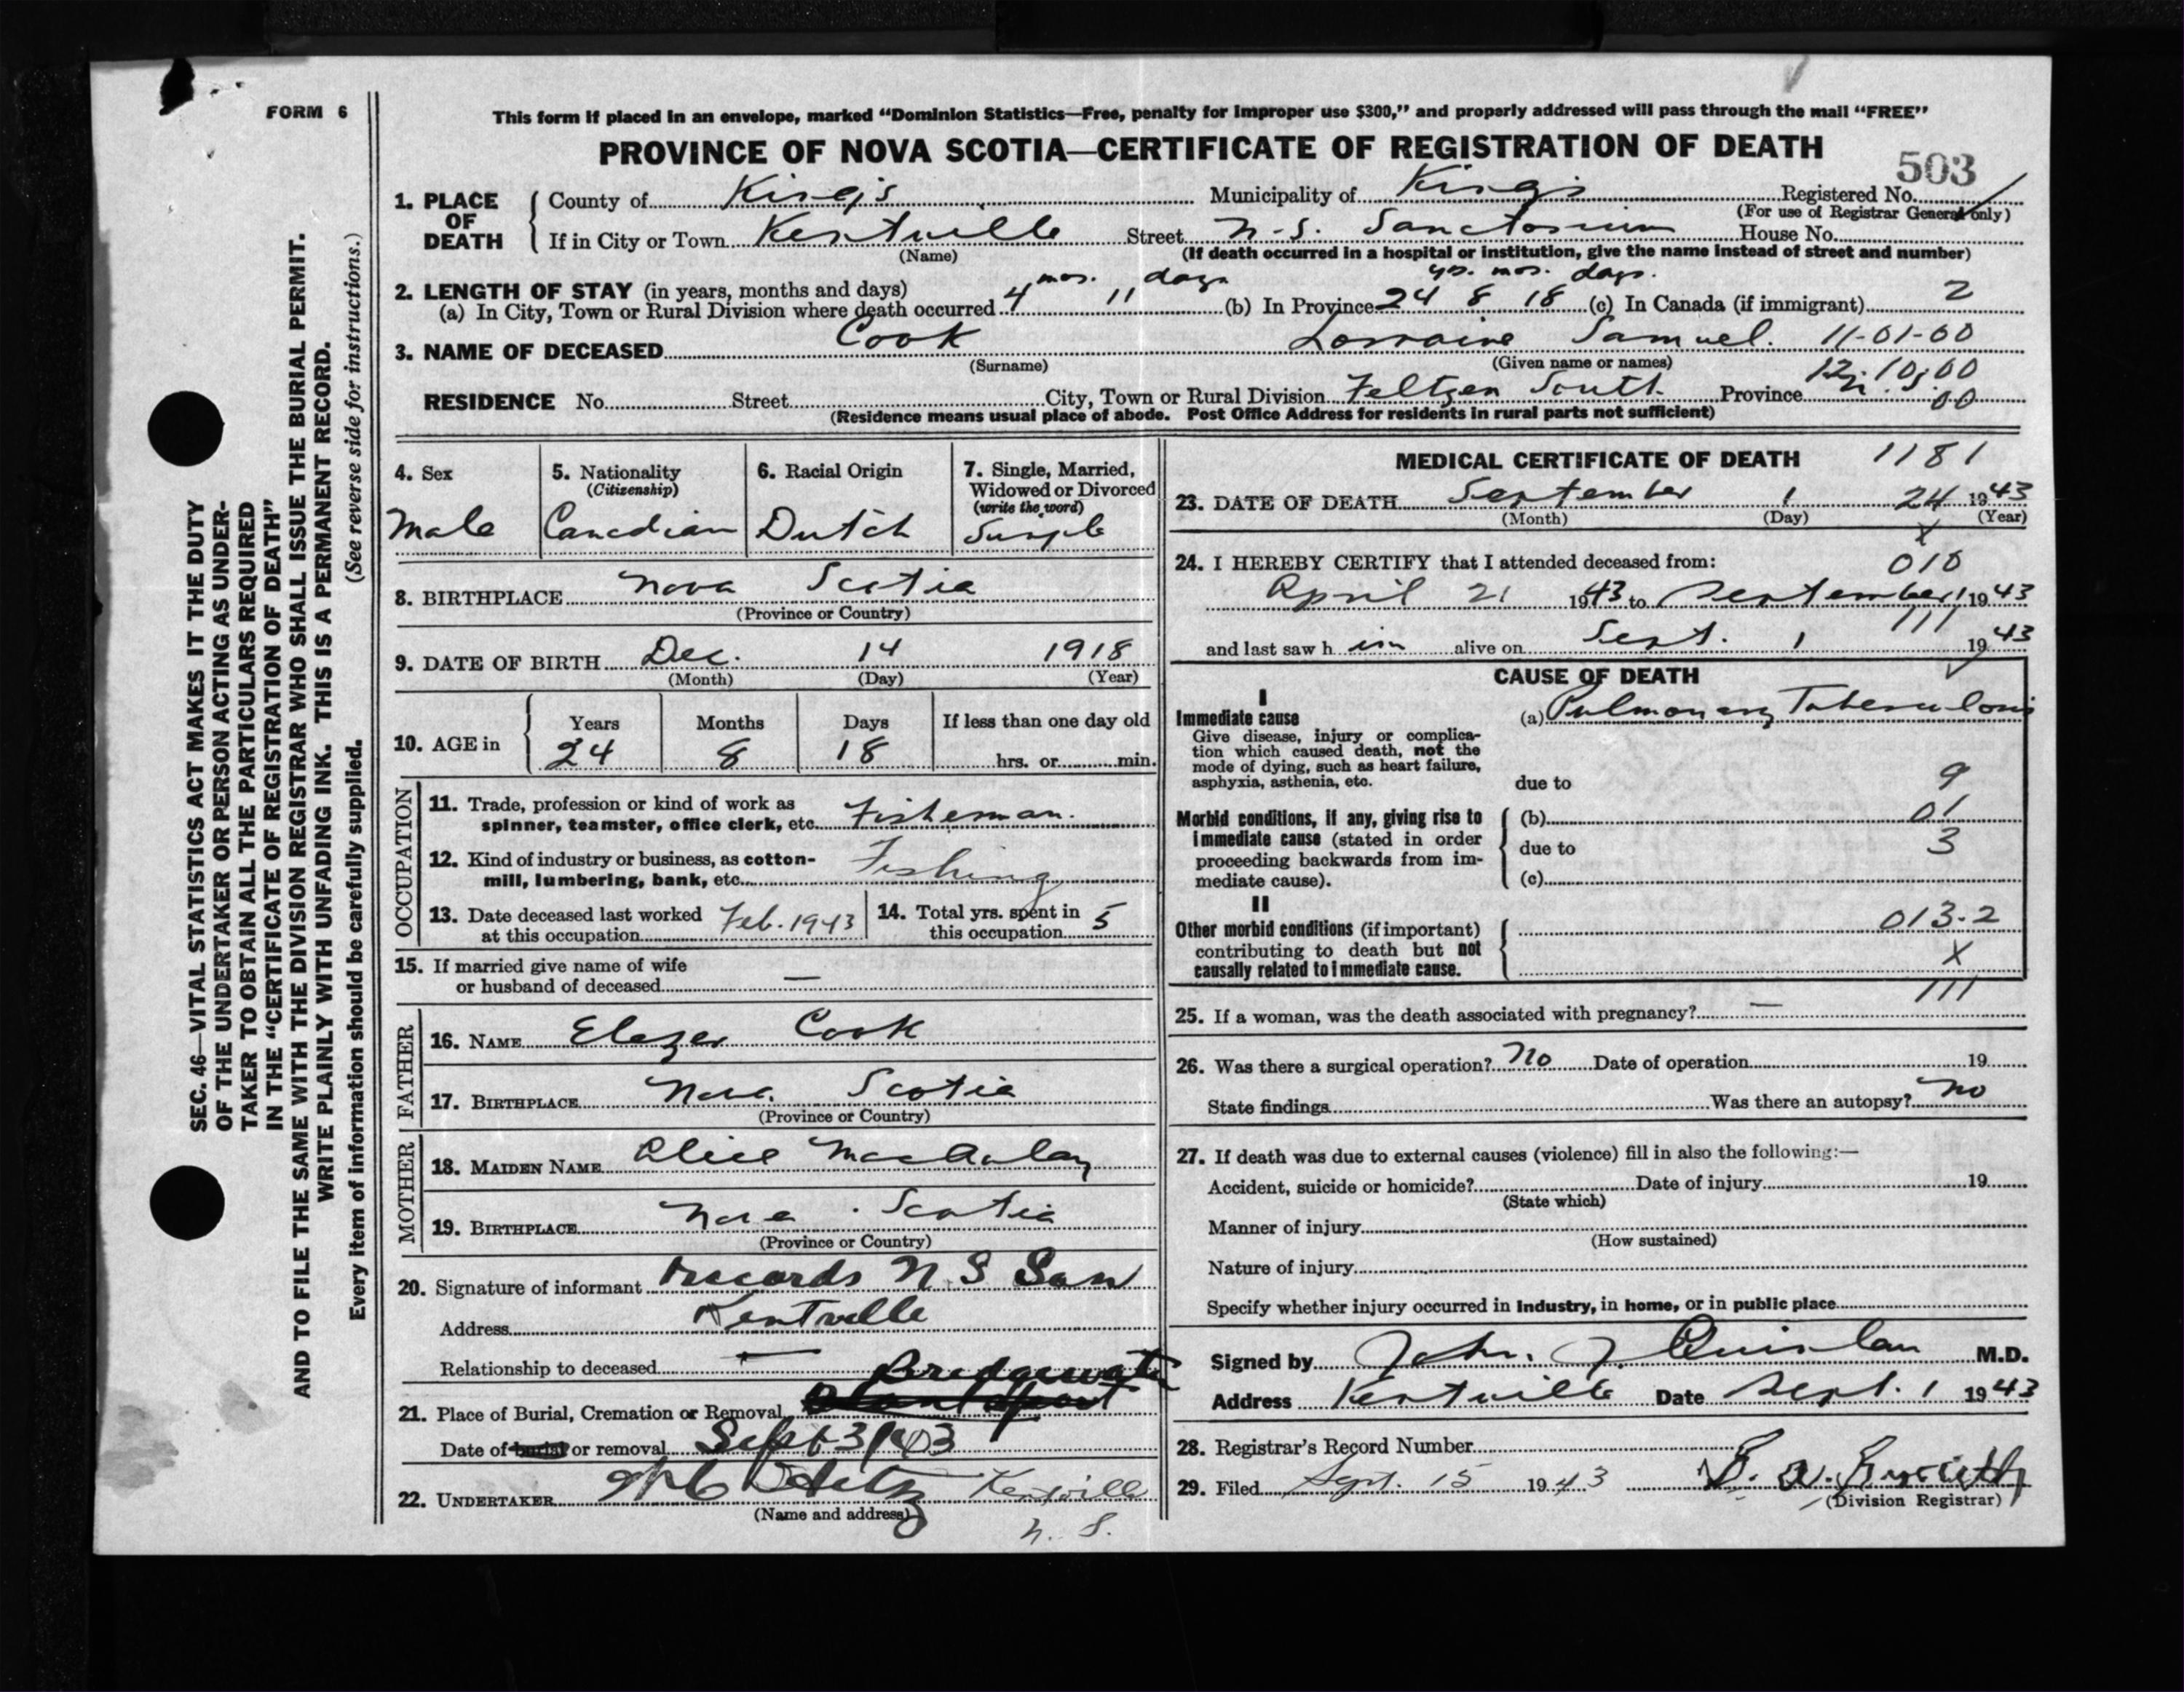 FORM 6
This form if placed in an envelope, marked “Dominion Statistics—Free, penalty for improper use $300,” and properly addressed will pass through the mail “FREE”
PROVINCE OF NOVA SCOTIA—CERTIFICATE OF REGISTRATION OF DEATH
503
1. PLACE OF DEATH
County of King's Municipality of Kings Registered No.
(For use of Registrar General only)
If in City or Town Kentville Street N.S. Sanctorium House No.
(Name) (If death occurred in a hospital or institution, give the name instead of street and number)
2. LENGTH OF STAY (in years, months and days) mos. days yrs. mos. days.
(a) In City, Town or Rural Division where death occurred 4 11 (b) In Province 24 8 18 (c) In Canada (if immigrant) 2
3. NAME OF DECEASED Cook Lorraine Samuel. 11-01-00
(Surname) (Given name or names)
12-10-00
RESIDENCE No. Street City, Town or Rural Division Feltzen South Province N.S. 00
(Residence means usual place of abode. Post Office Address for residents in rural parts not sufficient)
4. Sex Male
5. Nationality (Citizenship) Canadian
6. Racial Origin Dutch
7. Single, Married, Widowed or Divorced (write the word) Single
8. BIRTHPLACE Nova Scotia
(Province or Country)
9. DATE OF BIRTH Dec. 14 1918
(Month) (Day) (Year)
10. AGE in Years Months Days If less than one day old
24 8 18 hrs. or min.
OCCUPATION
11. Trade, profession or kind of work as
spinner, teamster, office clerk, etc. Fisherman.
12. Kind of industry or business, as cotton-
mill, lumbering, bank, etc. Fishing
13. Date deceased last worked
at this occupation Feb. 1943
14. Total yrs. spent in
this occupation 5
15. If married give name of wife
or husband of deceased —
FATHER
16. NAME Elezer Cook
17. BIRTHPLACE Nova Scotia
(Province or Country)
MOTHER
18. MAIDEN NAME Alice MacAulay
19. BIRTHPLACE Nova Scotia
(Province or Country)
20. Signature of informant Records N S San
Address Kentville
Relationship to deceased —
Bridgewater
21. Place of Burial, Cremation or Removal
Date of burial or removal Sept 3/43
22. UNDERTAKER Kentville
(Name and address) N. S.
MEDICAL CERTIFICATE OF DEATH 1181
23. DATE OF DEATH September 1 24 1943
(Month) (Day) (Year)
X
24. I HEREBY CERTIFY that I attended deceased from: 010
April 21 1943 to September 1 1943
111
and last saw h im alive on Sept. 1 1943
CAUSE OF DEATH
I
Immediate cause
Give disease, injury or complica-
tion which caused death, not the
mode of dying, such as heart failure,
asphyxia, asthenia, etc.
(a) Pulmonary Tuberculosis
due to 9
Morbid conditions, if any, giving rise to
immediate cause (stated in order
proceeding backwards from im-
mediate cause).
(b) 01
due to 3
(c)
II
Other morbid conditions (if important)
contributing to death but not
causally related to immediate cause.
013.2
X
111
25. If a woman, was the death associated with pregnancy? —
26. Was there a surgical operation? No Date of operation 19
State findings Was there an autopsy? No
27. If death was due to external causes (violence) fill in also the following:—
Accident, suicide or homicide? Date of injury 19
(State which)
Manner of injury
(How sustained)
Nature of injury
Specify whether injury occurred in industry, in home, or in public place
Signed by John J. Quinlan M.D.
Address Kentville Date Sept. 1 1943
28. Registrar's Record Number
29. Filed Sept. 15 1943
(Division Registrar)
SEC. 46—VITAL STATISTICS ACT MAKES IT THE DUTY
OF THE UNDERTAKER OR PERSON ACTING AS UNDER-
TAKER TO OBTAIN ALL THE PARTICULARS REQUIRED
IN THE “CERTIFICATE OF REGISTRATION OF DEATH”
AND TO FILE THE SAME WITH THE DIVISION REGISTRAR WHO SHALL ISSUE THE BURIAL PERMIT.
WRITE PLAINLY WITH UNFADING INK. THIS IS A PERMANENT RECORD.
Every item of information should be carefully supplied. (See reverse side for instructions.)